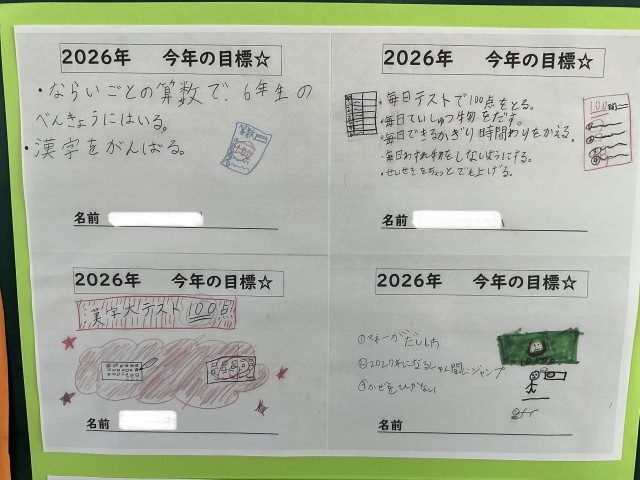 2026年 今年の目標☆
・ならいごとの算数で、6年生の
べんきょうにはいる。
・漢字をがんばる。
名前
2026年 今年の目標☆
・毎日テストで100点をとる。
・毎日ていしゅつ物をだす。
・毎日できるかぎり時間わりをかえる。
・毎日わすれ物をしないようにする。
・せいせきをちょっとでも上げる。
100点
名前
2026年 今年の目標☆
漢字大テスト100点
名前
2026年 今年の目標☆
①マネーが
②2027年になるしゅん間にジャンプ
③かぜをひかない
名前